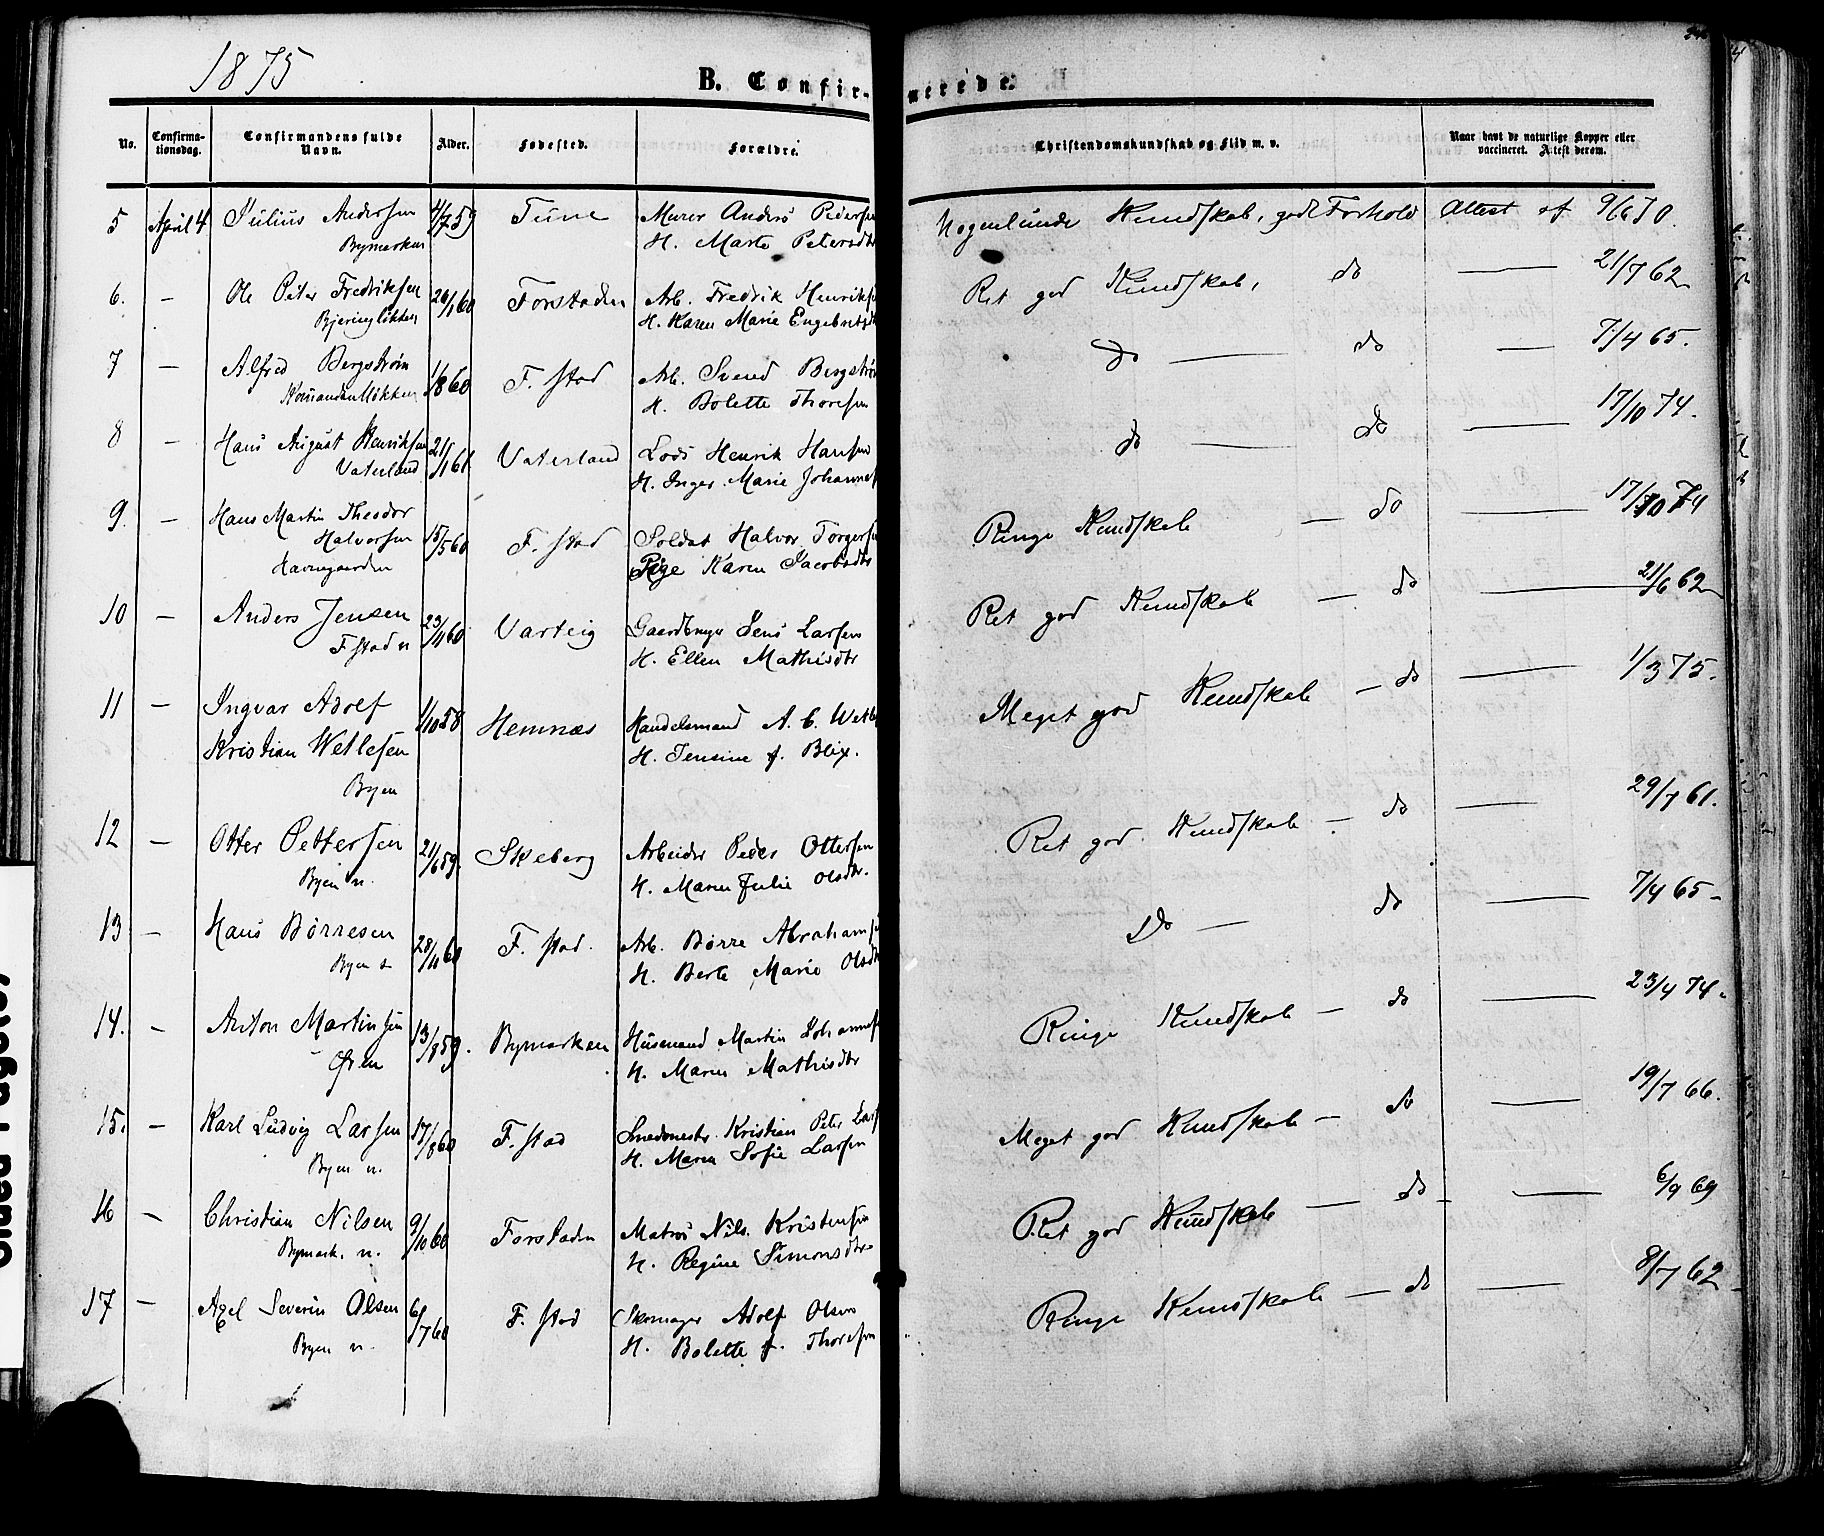 1875
B. Confirmerede.
No.
Confirmationsdag.
Confirmandens fulde Navn.
Alder.
Fødested.
Forældre.
Christendomskundskab og Flid m. v.
Naar havt de naturlige Kopper eller vaccineret. Attest derom.
5 April 4 Julius Andersen 4/7 59 Tune Murer Anders Pedersen Nogenlunde Kundskab, godt Forhold Attest af 9/6 70.
Bymarken H. Marte Petersdtr
6. — Ole Peter Fredriksen 20/1 60 Forstaden Arb. Fredrik Henriks Ret god Kundskab, do — 21/7 62
Bjeringløkken H. Karen Marie Engebretsdt
7 — Alfred Bergstrøm 1/8 60 F. stad Arb. Svend Bergstrø do — do — 7/4 65.
H. Bolette Thoresen
8 — Hans August Henriksen 21/1 61 Vaterland Lods Henrik Hansen do — do — 17/10 74.
Vaterland H. Inger Marie Johannes
9. — Hans Martin Theodor Halvorsen 15/5 60 F. stad Soldat Halvor Torgers Ringe Kundskab — do — 17/10 74
Pige Karen Jacobsdtr
10 — Anders Jensen 23/11 60 Varteig Gaardbruger Jens Larsen Ret god Kundskab — do — 21/6 62
F stad n H. Ellen Mathisdtr
11 — Ingvar Adolf 1/10 58 Hemnæs Handelsmand A. C. Wetl Meget god Kundskab — do — 1/3 75.
Kristian Wetlesen H. Jensine f. Blix.
Byen
12 — Otter Pettersen 21/6 59. Skeberg Arbeider Peder Ottersen Ret god Kundskab — do — 29/7 61.
Byen n. H. Maren Julie Olsdtr.
13 — Hans Børresen 28/11 60 F. stad. Arb. Børre Abrahams Do — do — 7/4 65 -
Byen s H. Berte Marie Olsdt
14. — Anton Martinsen 13/8 59. Bymarken Husmand Martin Johannes Ringe Kundskab — do — 23/4 74.
Øren H. Maren Mathisdtr
15. — Karl Ludvig Larsen 17/8 60 F. stad Smedmestr. Kristian Peter Lars Meget god Kundskab — do — 19/7 66.
Byen n. H. Maren Sofie Larsen
16 — Christian Nilsen 9/10 60 Forstaden Matros Nils Kristensen Ret god Kundskab — do — 6/9 69
Bymark. n. H. Regine Simonsdtr
17 — Axel Severin Olsen 6/7 60 F. stad Skomager Adolf Olsen Ringe Kundskab — do — 8/7 62
Byen n. H. Bolette f. Thoresen